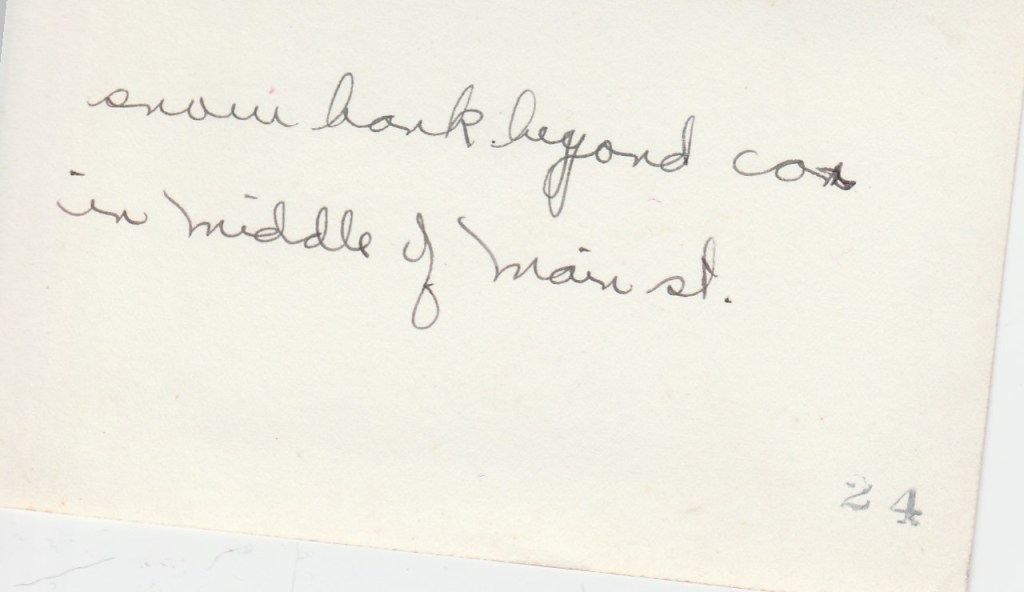 snow bank beyond car
in middle of Main st.
24